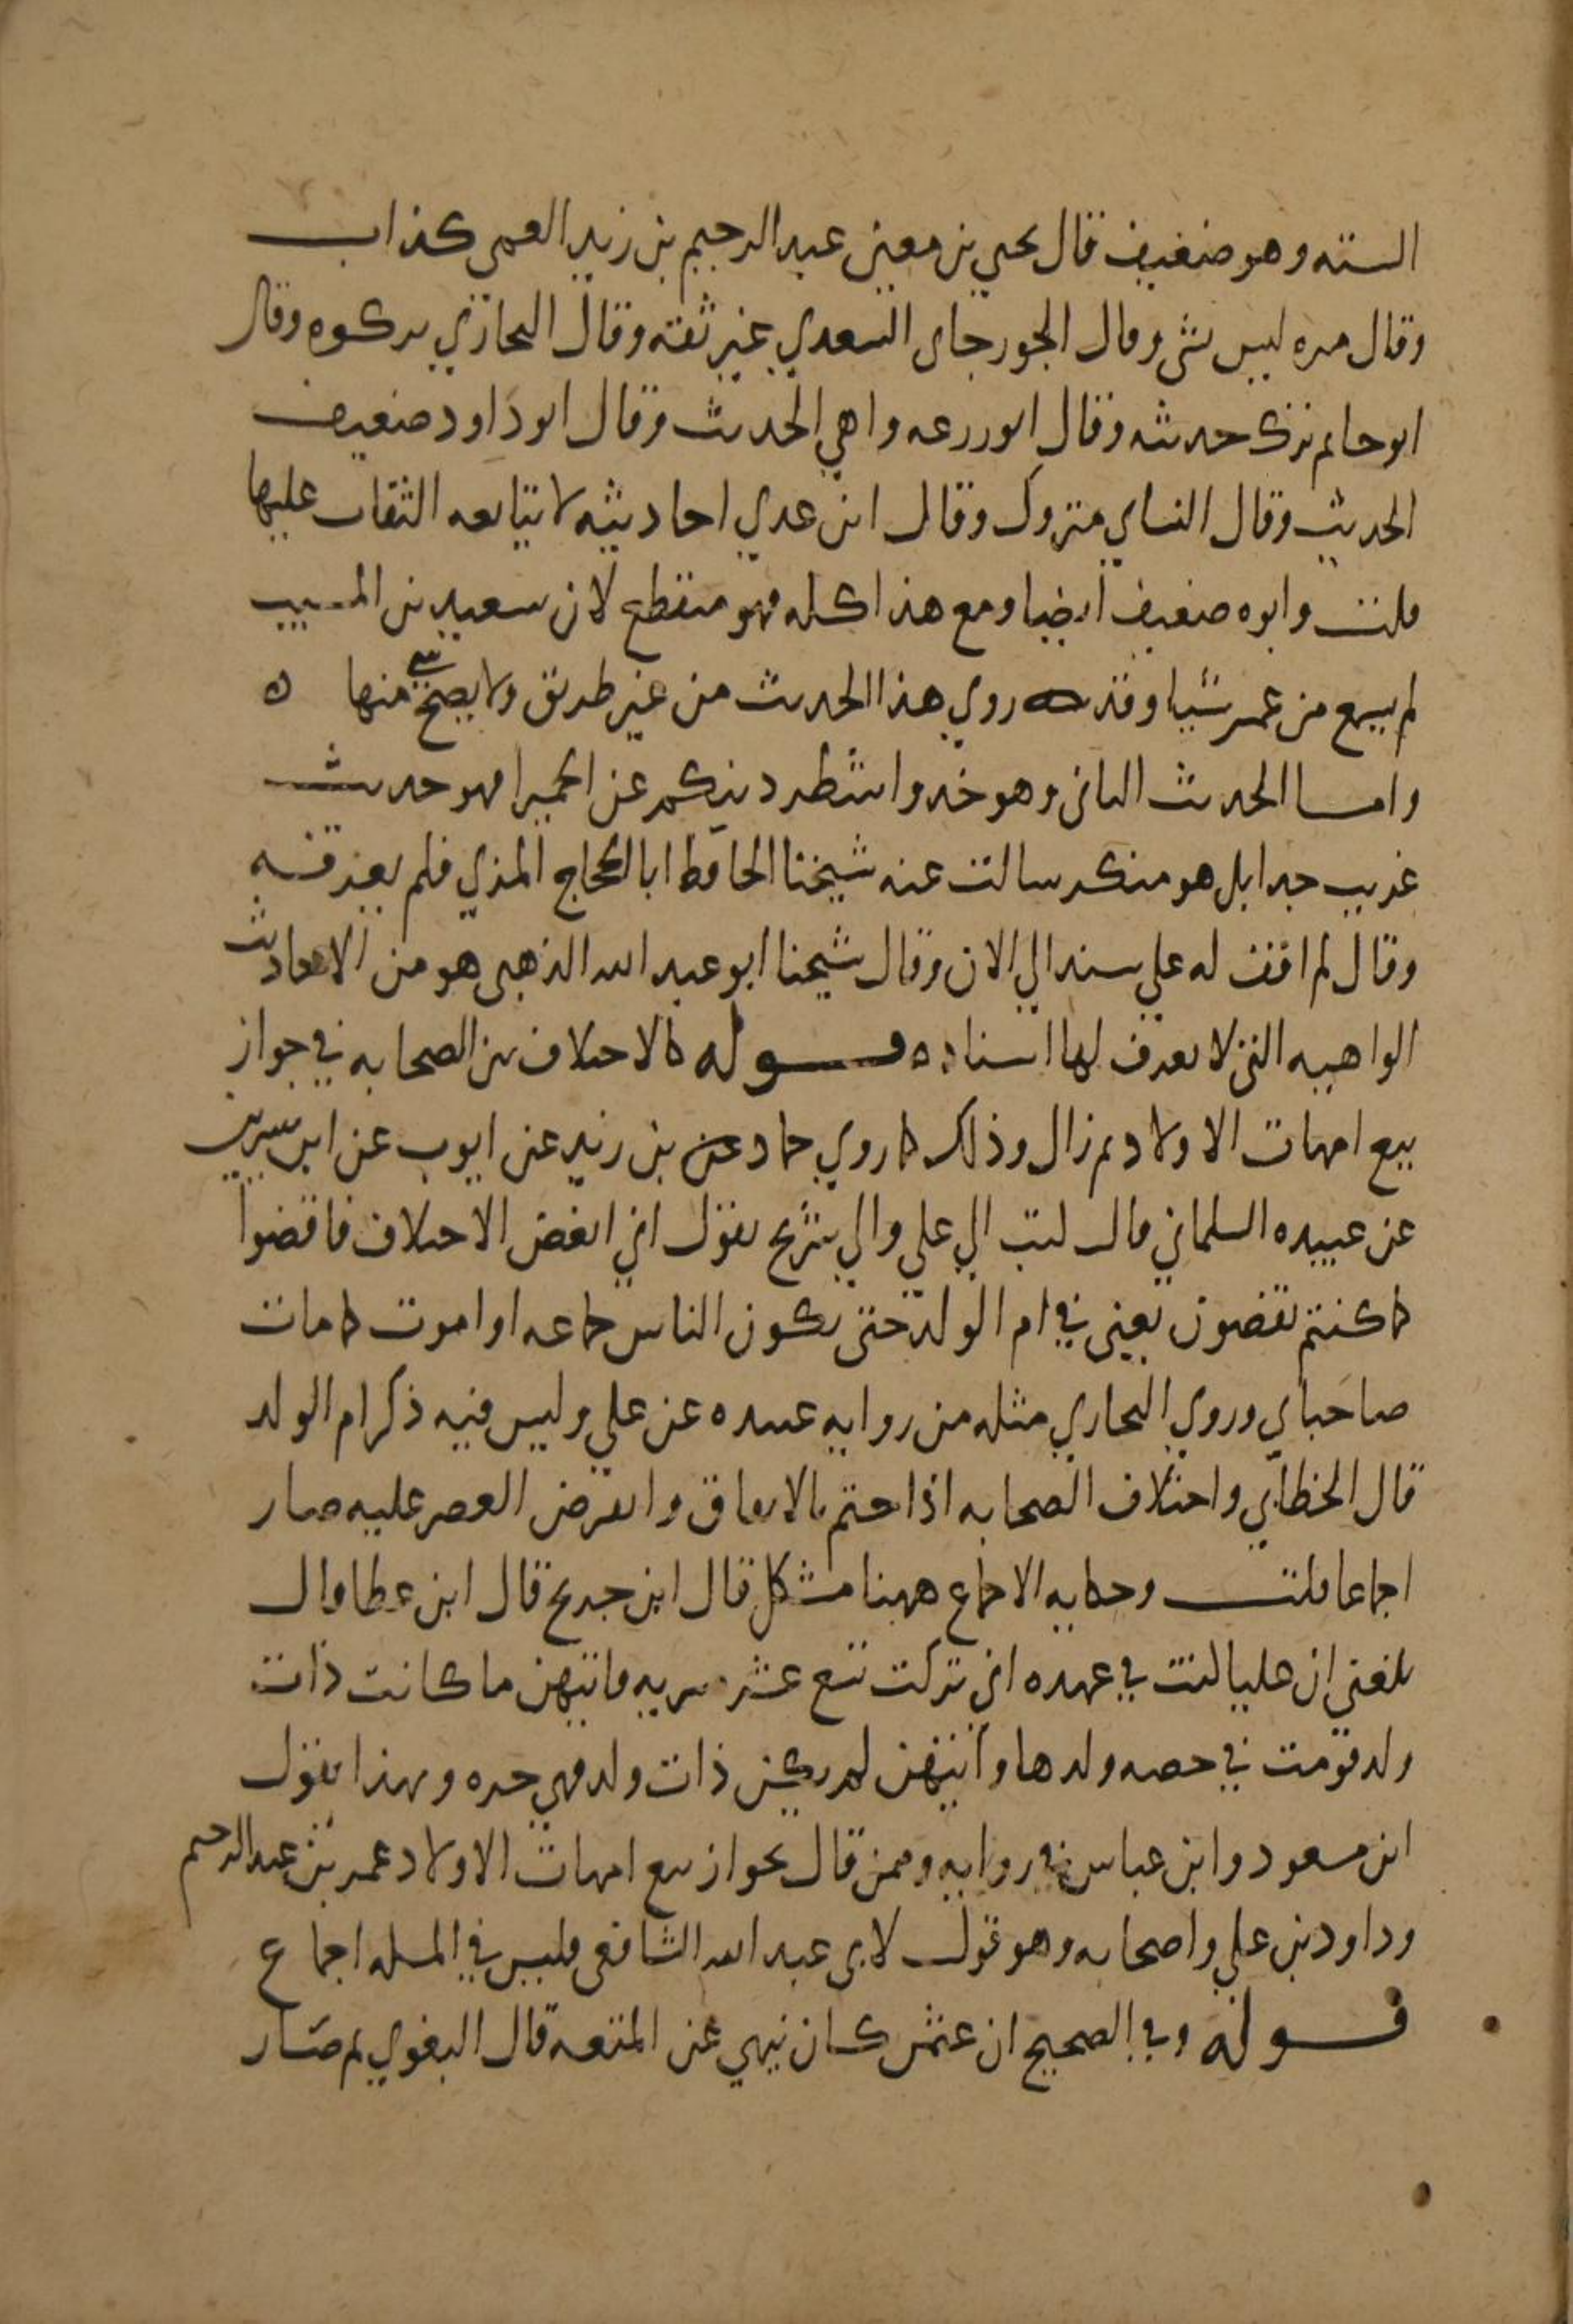 الستة وهو ضعيف قال يحيي بن معين عبد الرحيم بن زيد العمى كذاب
وقال مره ليس بشى وقال الجوزجاى السعدي غير ثقه وقال البخاري تركوه وقال
ابو حاتم ترك حديثه وقال ابو زرعه واهي الحديث وقال ابو داود ضعيف
الحديث وقال النساي متروك وقال ابن عدي احاديثه لا يتابعه الثقات عليها
قلت وابوه ضعيف ايضا ومع هذا كله فهو منقطع لان سعيد بن المسيب
لم يسمع من عمر شيا وقد روي هذا الحديث من غير طريق ولا يصح شي منها ه
واما الحديث الثانى وهو خذوا شطر دينكم عن الحميرا فهو حديث
غريب جدا بل هو منكر سالت عنه شيخنا الحافظ ابا الحجاج المزي فلم يعرفه
وقال لم اقف له علي سند الي الان وقال شيخنا ابو عبد الله الذهبى هو من الاحاديث
الواهيه التى لا يعرف لها اسناد ه قوله كالاختلاف بين الصحابه في جواز
بيع امهات الاولاد ثم زال وذلك كما روي حماد عن بن زيد عن ايوب عن ابن سيرين
عن عبيده السلماني قال كتب الي علي والي شريح يقول اني ابغض الاختلاف فاقضوا
كما كنتم تقضون يعنى في ام الولد حتى يكون الناس جماعه او اموت كما مات
صاحباي وروي البخاري مثله من روايه عبيده عن علي وليس فيه ذكر ام الولد
قال الخطابي واختلاف الصحابه اذا ختم بالاتفاق وانقرض العصر عليه صار
اجماعا قلت وحكايه الاجماع ههنا مشكل قال ابن جريج قال ابن عطا وال
بلغنى ان عليا كتب في عهده اني تركت تسع عشر سريه فايتهن ما كانت ذات
ولد قومت في حصه ولدها وايتهن لم تكن ذات ولد فهي حره وبهذا يقول
ابن مسعود وابن عباس في روايه وممن قال بجواز بيع امهات الاولاد عمر بن عبد الرحيم
وداود بن علي واصحابه وهو قول لابى عبد الله الشافعى فليس في المسله اجماع
قوله وفي الصحيح ان عثمن كان نهي عن المتعه قال البغوي ثم صار